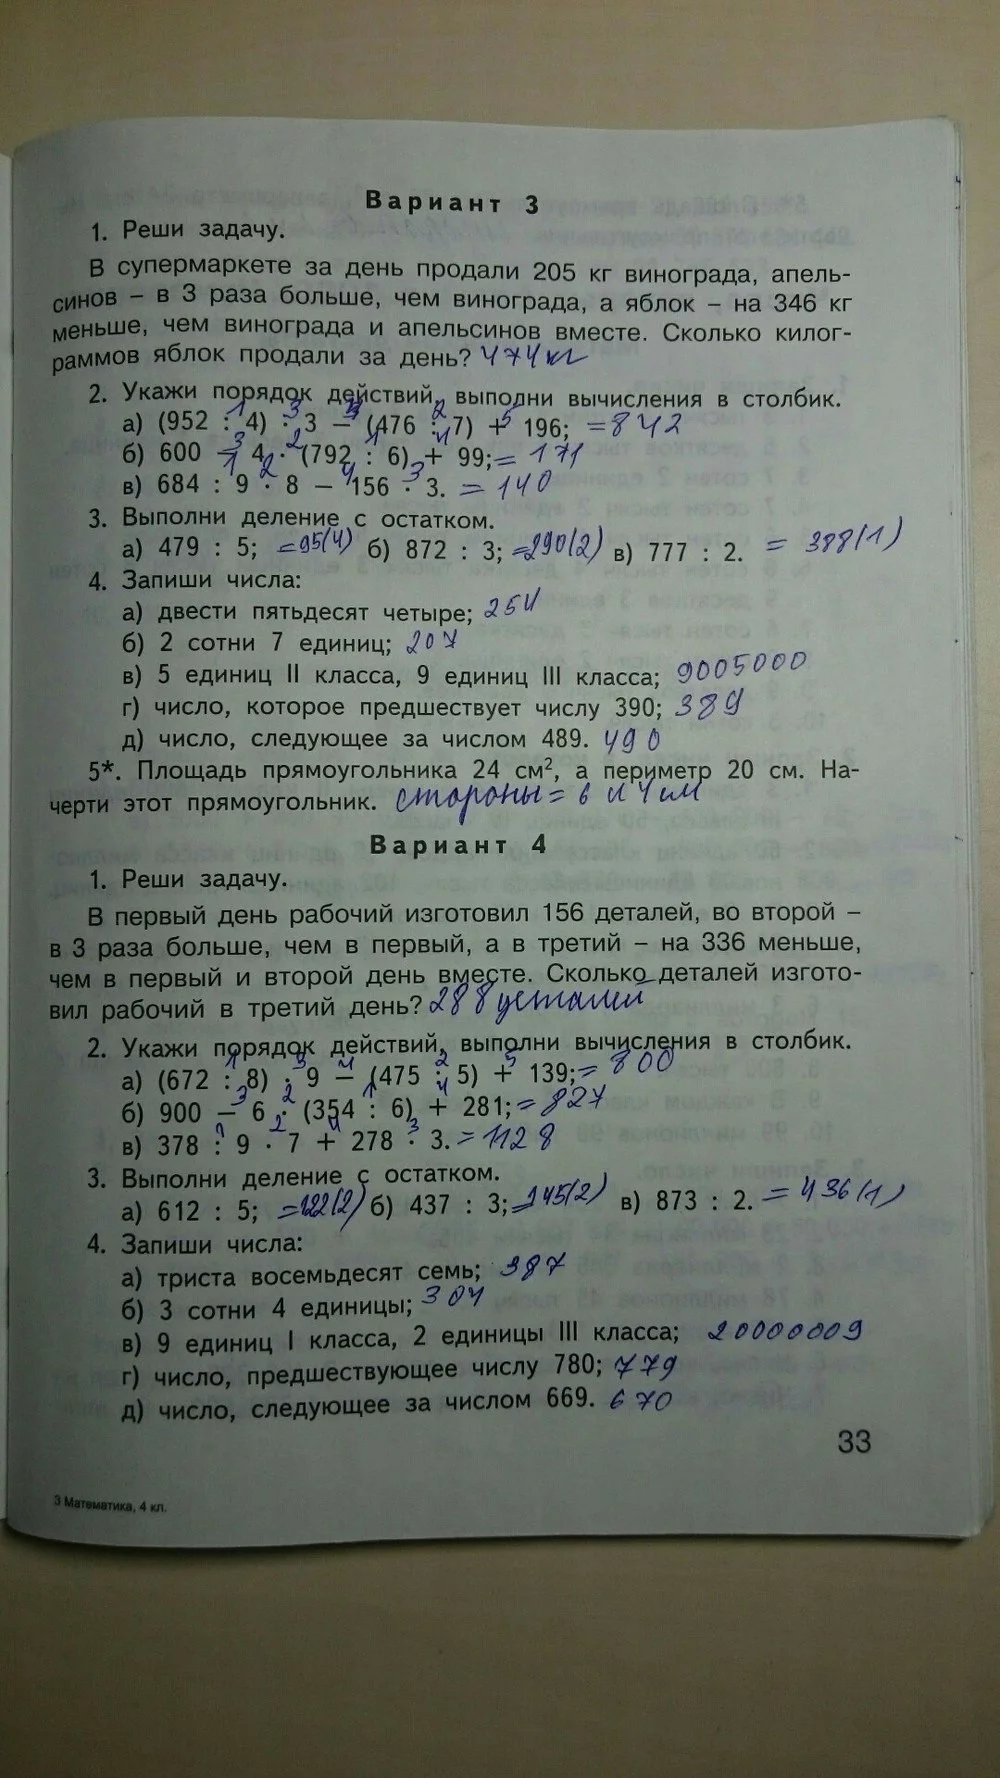 Вариант 3
1. Реши задачу.
В супермаркете за день продали 205 кг винограда, апель-
синов – в 3 раза больше, чем винограда, а яблок – на 346 кг
меньше, чем винограда и апельсинов вместе. Сколько килог-
раммов яблок продали за день? 474 кг
2. Укажи порядок действий, выполни вычисления в столбик.
1 3 4 2 5
а) (952 : 4) · 3 – (476 : 7) + 196; = 842
3 2 1 4
б) 600 – 4 · (792 : 6) + 99; = 171
1 2 4 3
в) 684 : 9 · 8 – 156 · 3. = 140
3. Выполни деление с остатком.
а) 479 : 5; =95(4) б) 872 : 3; =290(2) в) 777 : 2. = 388(1)
4. Запиши числа:
а) двести пятьдесят четыре; 254
б) 2 сотни 7 единиц; 207
в) 5 единиц II класса, 9 единиц III класса; 9005000
г) число, которое предшествует числу 390; 389
д) число, следующее за числом 489. 490
5*. Площадь прямоугольника 24 см², а периметр 20 см. На-
черти этот прямоугольник. стороны = 6 и 4 см
Вариант 4
1. Реши задачу.
В первый день рабочий изготовил 156 деталей, во второй –
в 3 раза больше, чем в первый, а в третий – на 336 меньше,
чем в первый и второй день вместе. Сколько деталей изгото-
вил рабочий в третий день? 288 деталей
2. Укажи порядок действий, выполни вычисления в столбик.
1 3 4 2 5
а) (672 : 8) · 9 – (475 : 5) + 139; = 800
3 2 1 4
б) 900 – 6 · (354 : 6) + 281; = 827
1 2 4 3
в) 378 : 9 · 7 + 278 · 3. = 1128
3. Выполни деление с остатком.
а) 612 : 5; =122(2) б) 437 : 3; =145(2) в) 873 : 2. = 436(1)
4. Запиши числа:
а) триста восемьдесят семь; 387
б) 3 сотни 4 единицы; 304
в) 9 единиц I класса, 2 единицы III класса; 20000009
г) число, предшествующее числу 780; 779
д) число, следующее за числом 669. 670
33
3 Математика, 4 кл.